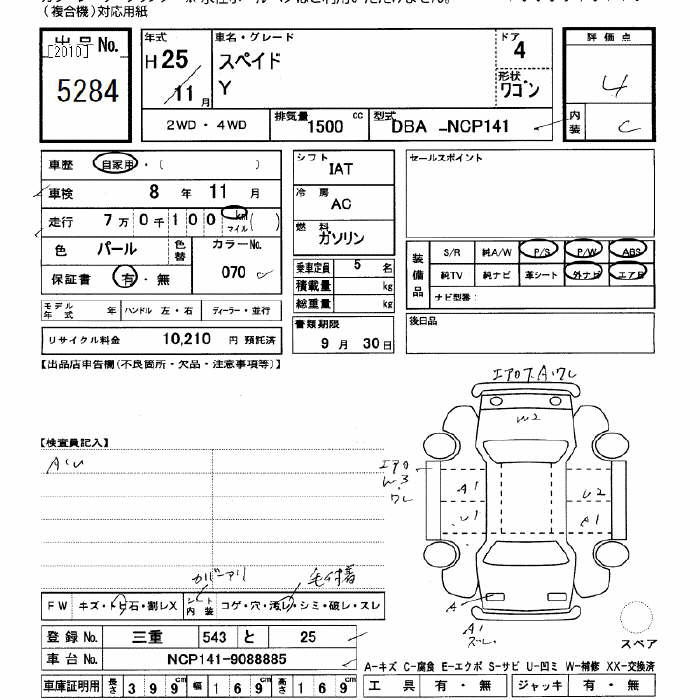 (複合機)対応用紙
出品No.
[2010]
5284
年式
H 25
11 月
車名・グレード
スペイド
Y
ドア
4
形状
ワゴン
評価点
4
内装
C
2WD・4WD
排気量 1500 cc
型式 DBA -NCP141
車歴 自家用・( )
車検 8 年 11 月
走行 7万 0千 1 0 0 km マイル ( )
色 パール 色替
カラーNo.
070
保証書 有・無
モデル年式 年 ハンドル 左・右 ディーラー・並行
リサイクル料金 10,210 円 預託済
シフト
IAT
冷房
AC
燃料
ガソリン
乗車定員 5 名
積載量 kg
総重量 kg
書類期限
9 月 30 日
セールスポイント
装備品
S/R 純A/W P/S P/W ABS
純TV 純ナビ 革シート 外ナビ エアB
ナビ型番:
後日品
【出品店申告欄(不良箇所・欠品・注意事項等)】
【検査員記入】
AU
エアロス.A.ワレ
W2
エアロ
W3
ワレ
A1
U1
U2
A1
A
A1
ズレ
カバーアリ
毛付着
FW キズ・トビ石・割レX
シート内装 コゲ・穴・汚レ・シミ・破レ・スレ
登録No. 三重 543 と 25
車台No. NCP141-9088885
車庫証明用 長さ 3 9 9 cm 幅 1 6 9 cm 高さ 1 6 9 cm
スペア
A-キズ C-腐食 E-エクボ S-サビ U-凹ミ W-補修 XX-交換済
工具 有・無 ジャッキ 有・無